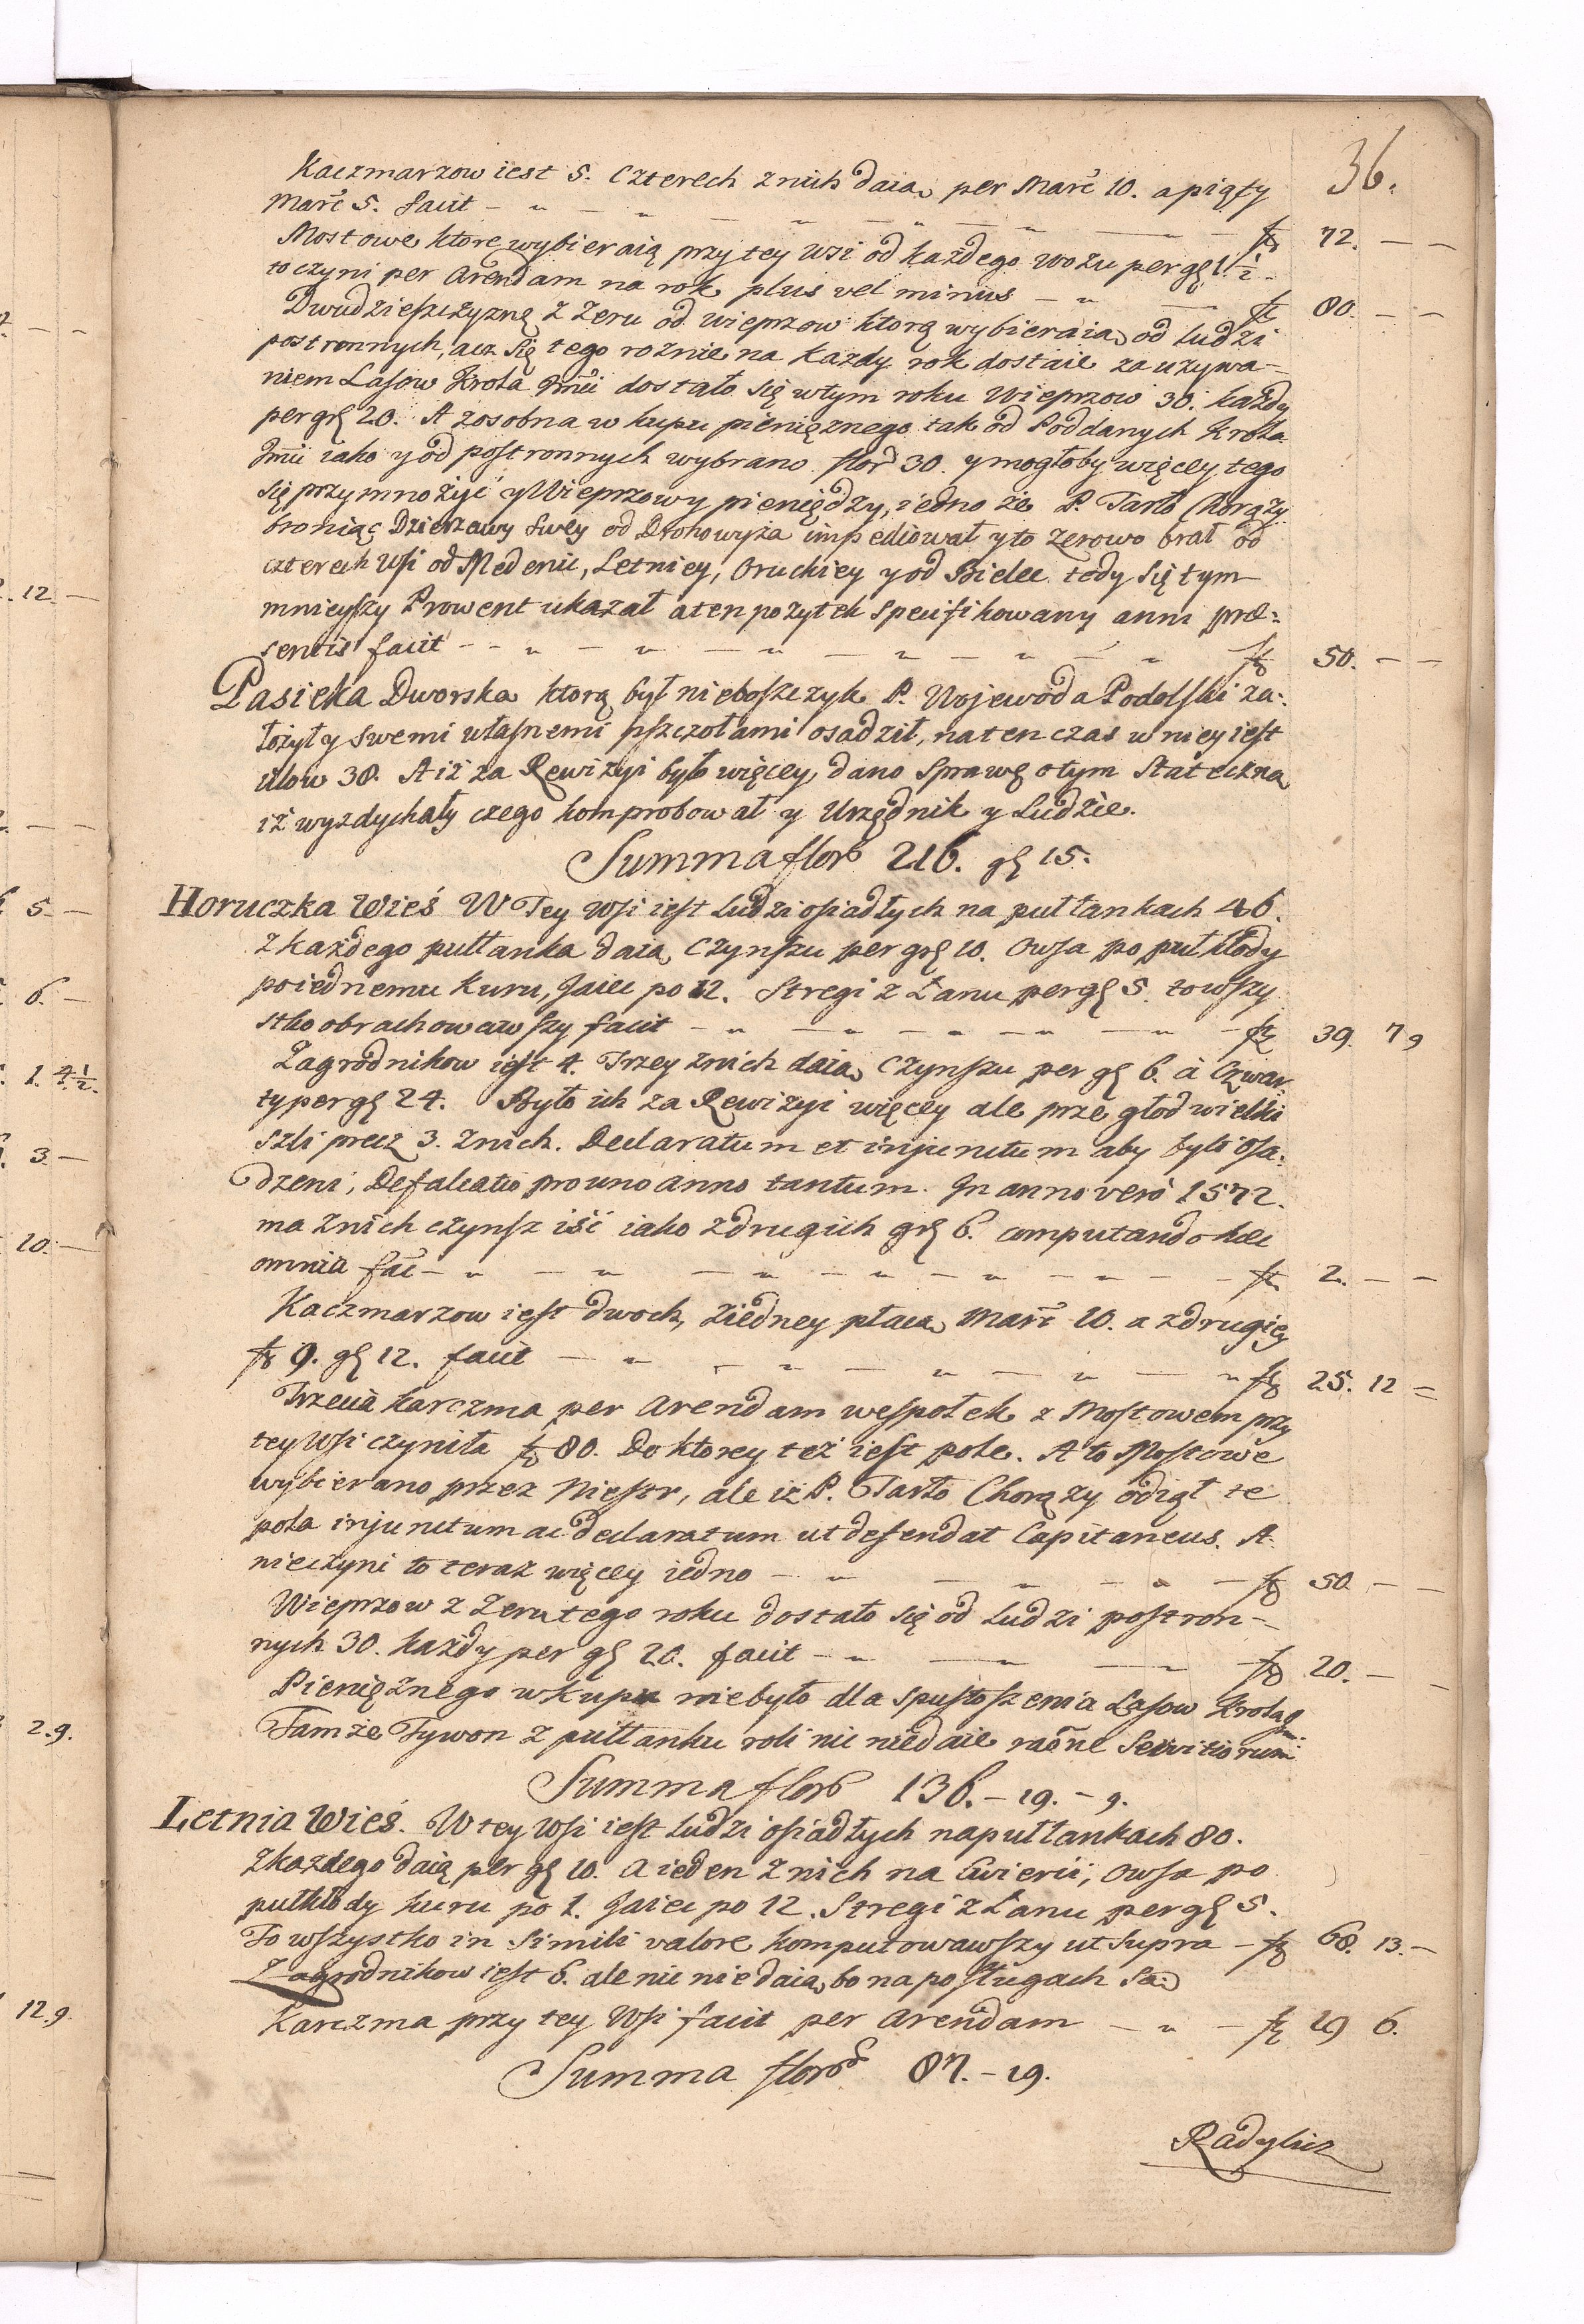 36.
Kaczmarzow iest 5. Czterech znich daią per Marc 10. a piąty
Marc 5. facit — „ — „ — „ — „ — „ — fl 72. — —
Mostowe ktore wybieraią przy tey Wsi od każdego wozu per gł 1½.
to czyni per Arendam na rok plus vel minus — „ — fl 80. — —
Dwudzieszczyznę z Zeru od Wieprzow ktorą wybieraią od ludzi
postronnych, acz się tego roznie na każdy rok dostaie za używa=
niem Lasow Krola Jmci dostało się wtym roku Wieprzow 30. każdy
per gł 20. A zosobna wkupu pieniężnego tak od Poddanych Krola
Jmci iako y od postronnych wybrano flor 30. y mogłoby więcey tego
się przymnożyć y Wieprzow y pieniędzy, iedno że P. Tarło Chorąży
broniąc Dzierzawy swey od Drohowyża impediował y to Zerowo brał od
czterech Wsi od Medenic, Letniey, Oruckiey y od Bielec tedy się tym
mnieyszy Prowent ukazał a ten pożytek specifikowany anni præ=
sentis facit — „ — „ — „ — „ — „ — „ fl 50. — —
Pasieka Dworska ktorą był nieboszczyk P. Wojewoda Podolski za=
łożył y swemi własnemi pszczołami osadził, na ten czas w niey iest
Ulow 38. A iż za Rewizyi było więcey, dano sprawę o tym Stateczną
iż wyzdychały czego komprobował y Urzędnik y Ludzie.
Summa flor 216. gł 15.
Horuczka Wieś W Tey Wsi iest Ludzi osiadłych na pułłankach 46.
z każdego pułłanka daią Czynszu per grł 10. Owsa po puł kłody
po iednemu Kuru, Jaiec po 12. Stregi z Łanu per gł 5. to wszy
stko obrachowawszy facit — „ — „ — „ — „ — fl 39. 7 9
Zagrodnikow iest 4. Trzey znich daią Czynszu per gł 6. à Czwar
ty per gł 24. Było ich za Rewizyi więcey ale prze głod wielki
szli precz 3. znich. Declaratum et injunctum aby byli osa=
dzeni, Defalcatio pro uno anno tantum. In anno vero 1572.
ma znich czynsz iść iako z drugich grł 6. computando hæc
omnia fac — „ — „ — „ — „ — „ — „ — fl 2. — —
Kaczmarzow iest dwoch, ziedney płacą Marc 10. a zdrugiey
fl 9. gł 12. facit — „ — „ — „ — „ — „ fl 25. 12 =
Trzecia Karczma per Arendam wespołek z Mostowem przy
tey Wsi czyniła fl 80. Do ktorey też iest pole. A to Mostowe
wybierano przez Niestr, ale iż P. Tarło Chorąży odiął te
pola injunctum ac declaratum ut defendat Capitaneus. A
nieczyni to teraz więcey iedno — „ — „ — „ — fl 50 — —
Wieprzow z Zeru tego roku dostało się od Ludzi postron=
nych 30. każdy per gł 20. facit — „ — „ — „ — fl 20. — —
Pieniężnego wkupu niebyło dla spustoszenia Lasow Krola J
Tamże Tywon z pułłanku roli nic niedaie raõne Servitiorum
Summa flor 136. — 19. — 9.
Letnia Wieś. W tey Wsi iest Ludzi osiadłych na pułłankach 80.
z każdego daią per gł 10. A ieden z nich na ćwierci, Owsa po
pułkłody kuru po 1. Jaiec po 12. Stregi z Łanu per gł 5.
To wszystko in simili valore komputowawszy ut supra — fl 68. 13. —
Zagrodnikow iest 6. ale nic niedaią, bo na posługach są
Karczma przy tey Wsi facit per Arendam — „ — fl 19 6.
Summa flor 87. — 19.
Radylicz
12.
5.
6.
1. 4½.
3
10.
2. 9.
12. 9.